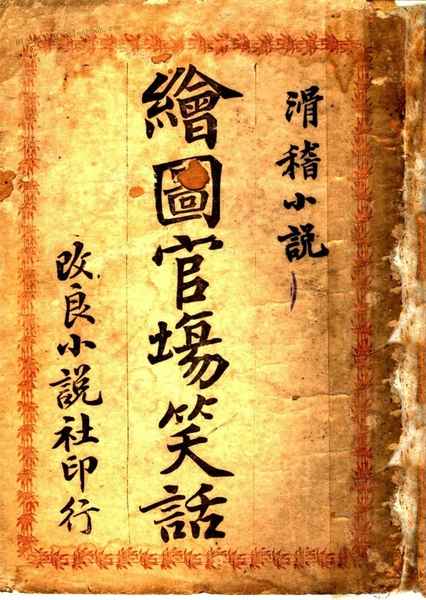 滑稽小説
繪圖官塲笑話
改良小説社印行